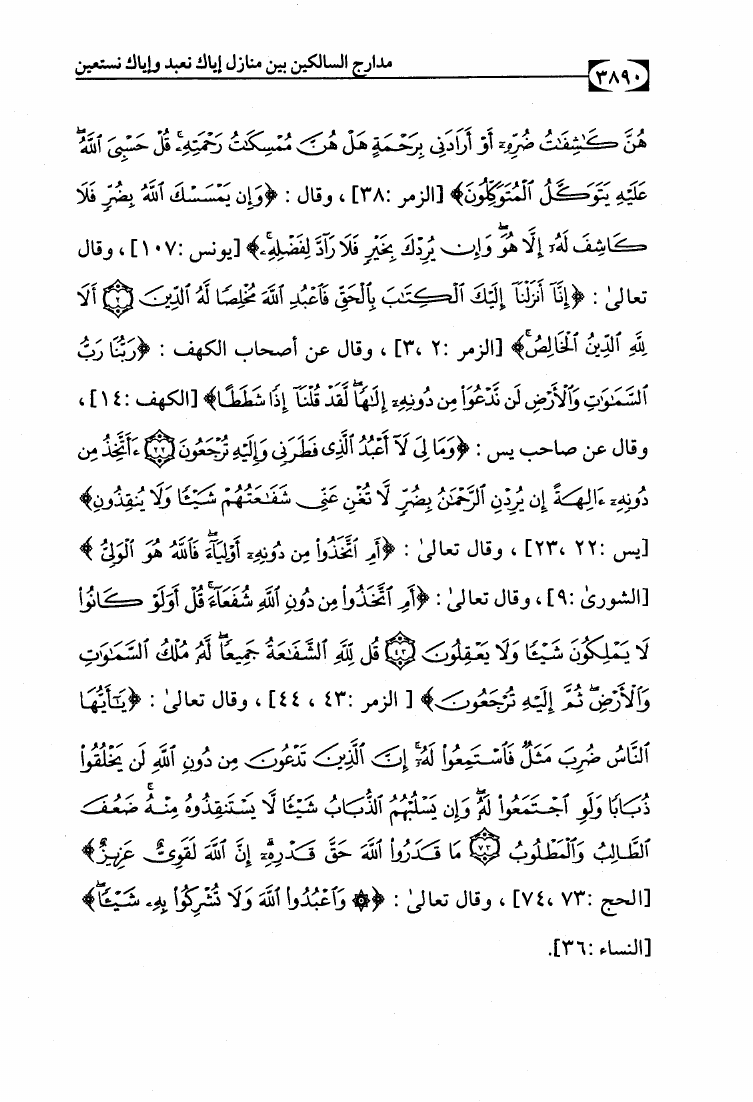 مدارج السالكين بين منازل إياك نعبد وإياك نستعين
٣٨٩٠
هُنَّ كَٰشِفَٰتُ ضُرِّهِۦٓ أَوۡ أَرَادَنِي بِرَحۡمَةٍ هَلۡ هُنَّ مُمۡسِكَٰتُ رَحۡمَتِهِۦۚ قُلۡ حَسۡبِيَ ٱللَّهُۖ
عَلَيۡهِ يَتَوَكَّلُ ٱلۡمُتَوَكِّلُونَ﴾ [الزمر :٣٨] ، وقال : ﴿وَإِن يَمۡسَسۡكَ ٱللَّهُ بِضُرّٖ فَلَا
كَاشِفَ لَهُۥٓ إِلَّا هُوَۖ وَإِن يُرِدۡكَ بِخَيۡرٖ فَلَا رَآدَّ لِفَضۡلِهِۦۚ﴾ [يونس :١٠٧] ، وقال
تعالىٰ : ﴿إِنَّآ أَنزَلۡنَآ إِلَيۡكَ ٱلۡكِتَٰبَ بِٱلۡحَقِّ فَٱعۡبُدِ ٱللَّهَ مُخۡلِصٗا لَّهُ ٱلدِّينَ ٢ أَلَا
لِلَّهِ ٱلدِّينُ ٱلۡخَالِصُۚ﴾ [الزمر :٢ ،٣] ، وقال عن أصحاب الكهف : ﴿رَبُّنَا رَبُّ
ٱلسَّمَٰوَٰتِ وَٱلۡأَرۡضِ لَن نَّدۡعُوَاْ مِن دُونِهِۦٓ إِلَٰهٗاۖ لَّقَدۡ قُلۡنَآ إِذٗا شَطَطًا﴾ [الكهف :١٤] ،
وقال عن صاحب يس : ﴿وَمَا لِيَ لَآ أَعۡبُدُ ٱلَّذِي فَطَرَنِي وَإِلَيۡهِ تُرۡجَعُونَ ٢٢ ءَأَتَّخِذُ مِن
دُونِهِۦٓ ءَالِهَةً إِن يُرِدۡنِ ٱلرَّحۡمَٰنُ بِضُرّٖ لَّا تُغۡنِ عَنِّي شَفَٰعَتُهُمۡ شَيۡـٔٗا وَلَا يُنقِذُونِ﴾
[يس :٢٢ ،٢٣] ، وقال تعالىٰ : ﴿أَمِ ٱتَّخَذُواْ مِن دُونِهِۦٓ أَوۡلِيَآءَۖ فَٱللَّهُ هُوَ ٱلۡوَلِيُّ ﴾
[الشورىٰ :٩] ، وقال تعالىٰ : ﴿أَمِ ٱتَّخَذُواْ مِن دُونِ ٱللَّهِ شُفَعَآءَۚ قُلۡ أَوَلَوۡ كَانُواْ
لَا يَمۡلِكُونَ شَيۡـٔٗا وَلَا يَعۡقِلُونَ ٤٣ قُل لِّلَّهِ ٱلشَّفَٰعَةُ جَمِيعٗاۖ لَّهُۥ مُلۡكُ ٱلسَّمَٰوَٰتِ
وَٱلۡأَرۡضِۖ ثُمَّ إِلَيۡهِ تُرۡجَعُونَ﴾ [ الزمر :٤٣ ، ٤٤] ، وقال تعالىٰ : ﴿يَٰٓأَيُّهَا
ٱلنَّاسُ ضُرِبَ مَثَلٞ فَٱسۡتَمِعُواْ لَهُۥٓۚ إِنَّ ٱلَّذِينَ تَدۡعُونَ مِن دُونِ ٱللَّهِ لَن يَخۡلُقُواْ
ذُبَابٗا وَلَوِ ٱجۡتَمَعُواْ لَهُۥۖ وَإِن يَسۡلُبۡهُمُ ٱلذُّبَابُ شَيۡـٔٗا لَّا يَسۡتَنقِذُوهُ مِنۡهُۚ ضَعُفَ
ٱلطَّالِبُ وَٱلۡمَطۡلُوبُ ٧٣ مَا قَدَرُواْ ٱللَّهَ حَقَّ قَدۡرِهِۦٓۚ إِنَّ ٱللَّهَ لَقَوِيٌّ عَزِيزٌ﴾
[الحج :٧٣ ،٧٤] ، وقال تعالىٰ : ﴿۞ وَٱعۡبُدُواْ ٱللَّهَ وَلَا تُشۡرِكُواْ بِهِۦ شَيۡـٔٗاۖ﴾
[النساء :٣٦].